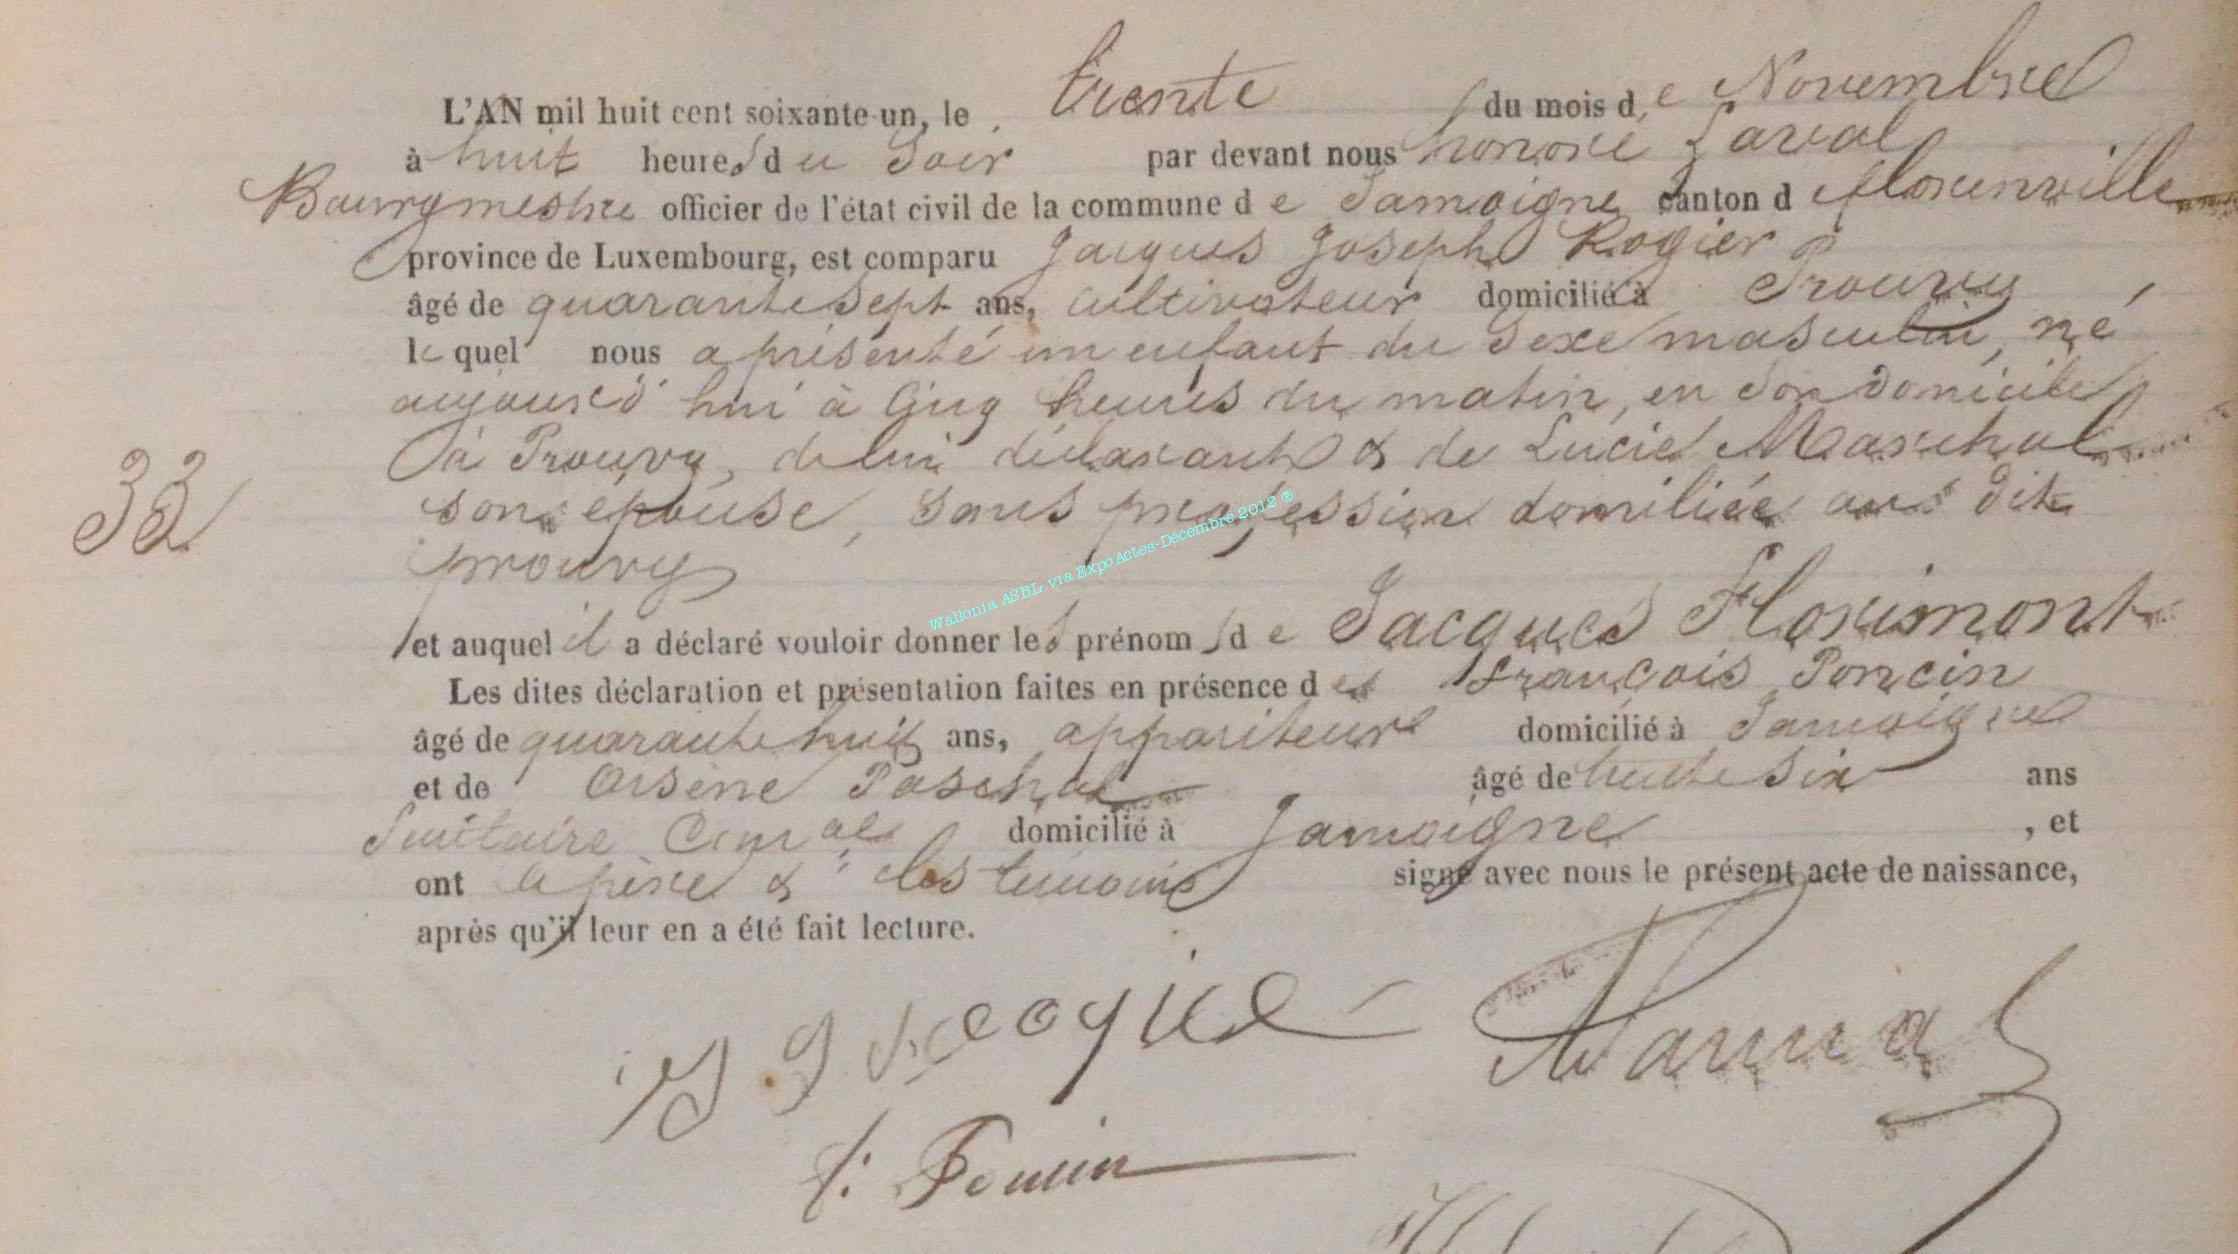 L'AN mil huit cent soixante-un, le trente du mois de Novembre
à huit heures du Soir par devant nous honoré Laval
Bourgmestre officier de l'état civil de la commune de Jamoigne canton d florenville
province de Luxembourg, est comparu Jacques Joseph Rogier
âgé de quarante sept ans, cultivateur domicilié à Prouvy,
lequel nous a présenté un enfant du Sexe masculin, né
aujourd'hui à Cinq heures du matin, en Son domicile
à Prouvy, de lui déclarant & de Lucie Marchal
son épouse, sans profession domiliée au dit
prouvy
33
et auquel il a déclaré vouloir donner les prénoms de Jacques Florimont
Les dites déclaration et présentation faites en présence de François Poncin
âgé de quarante huit ans, appariteur domicilié à Jamoigne
et de Arsène Paschal âgé de trente Six ans
Cmal domicilié à Jamoigne, et
ont le père & les témoins signé avec nous le présent acte de naissance,
après qu'il leur en a été fait lecture.
J J Rogier
f: Poncin
Wallonia ASBL via ExpoActes-Décembre 2012 ®